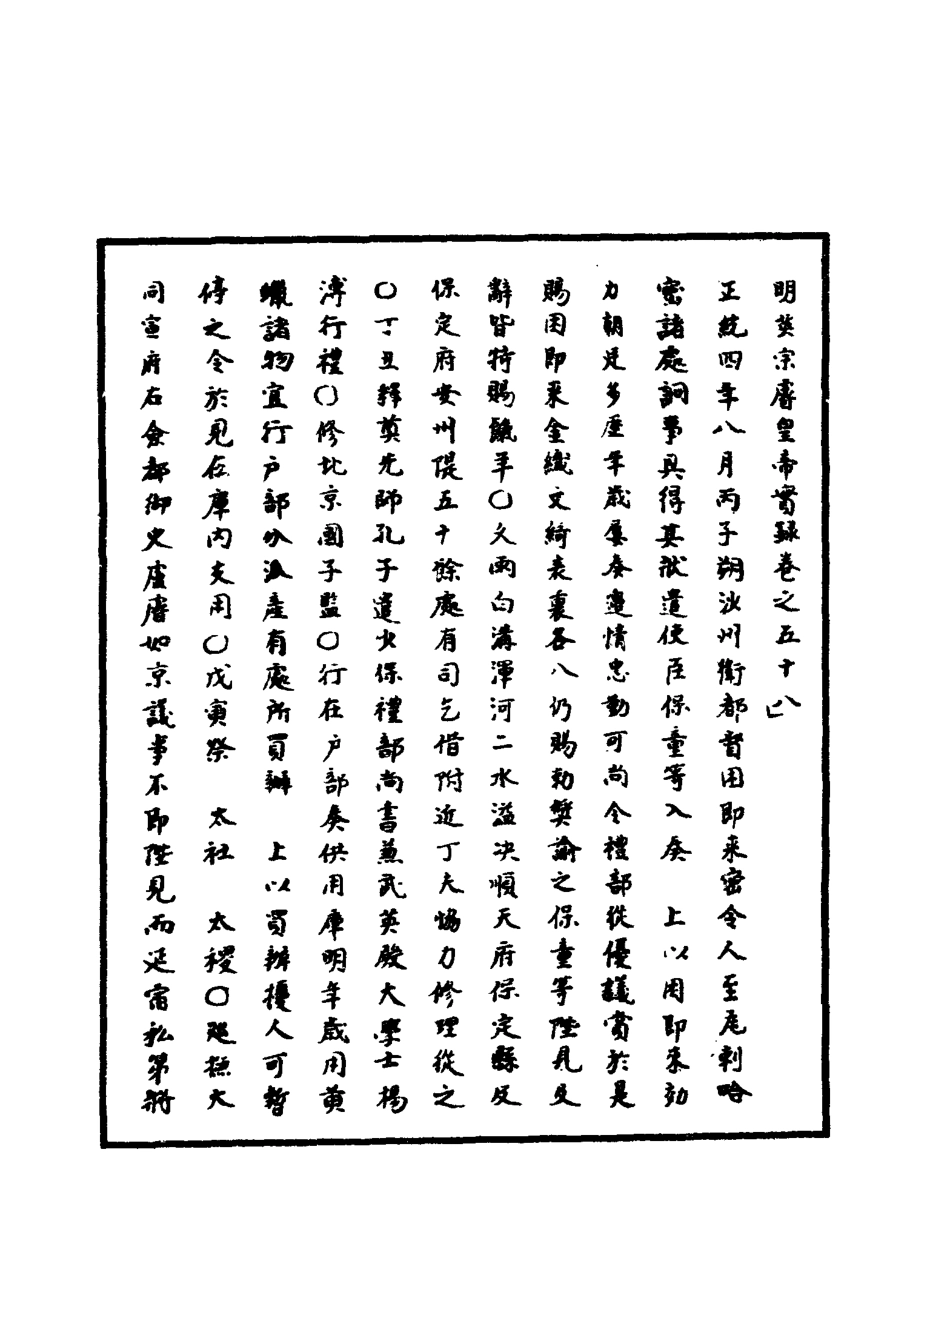 明英宗睿皇帝實錄卷之五十八
正統四年八月丙子朔沙州衛都督困即来密令人至瓦剌略
密諸處詞事具得其狀遣使臣保童等入奏　上以困即来効
力朝廷多歷年歲屢奏邊情忠勤可尚令禮部從優議賞於是
賜困即来金織文綺表裏各八仍賜勑獎諭之保童等陛見及
辭皆特賜氈羊○久雨白溝渾河二水溢决順天府保定縣及
保定府安州隄五十餘處有司乞借附近丁夫協力修理從之
○丁丑釋奠先師孔子遣少保禮部尚書兼武英殿大學士楊
溥行禮○修北京國子監○行在户部奏供用庫明年歲用黄
蠟諸物宜行户部分派產有處所買辦　上以買辦擾人可暫
停之令於見在庫内支用○戊寅祭　太社　太稷○廵撫大
同宣府右僉都御史盧睿如京議事不即陛見而延宿私第將